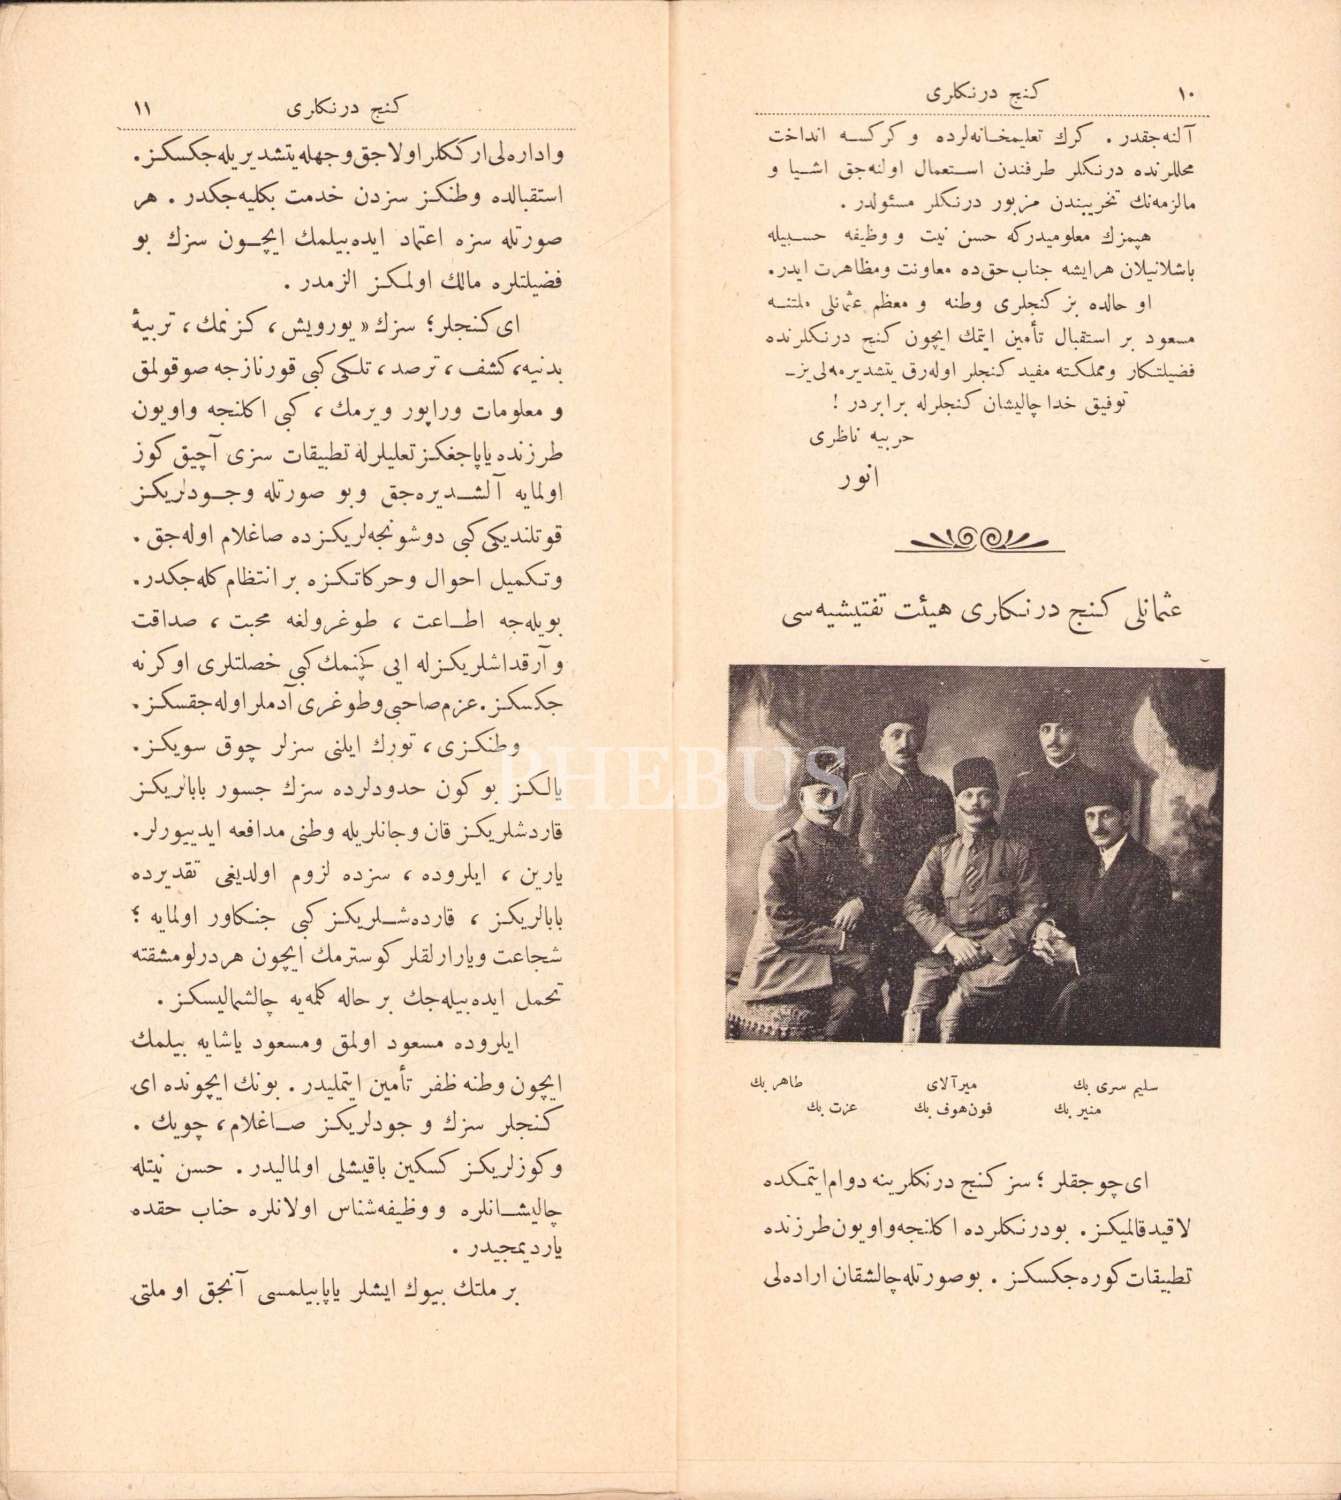 ١٠
كنج درنكلرى
آلنه‌جقدر . كرك تعليمخانه‌لرده و كركسه انداخت
محللرنده درنكلر طرفندن استعمال اولنه‌جق اشيا و
مالزمه‌نك تخريبندن مزبور درنكلر مسئولدر .
هپمزك معلوميدركه حسن نيت و وظيفه حسبيله
باشلانيلان هرايشه جناب حق‌ده معاونت ومظاهرت ايدر.
او حالده بز كنجلرى وطنه و معظم عثمانلى ملتنه
مسعود بر استقبال تأمين ايتمك ايچون كنج درنكلرنده
فضيلتكار ومملكته مفيد كنجلر اوله‌رق يتشديرمه‌لى‌يز ـ
توفيق خدا چاليشان كنجلرله برابردر !
حربيه ناظرى
انور
عثمانلى كنج درنكلرى هيئت تفتيشيه‌سى
PHEBUS
سليم سرى بك ميرآلاى طاهر بك
منير بك فون‌هوف بك عزت بك
اى چوجقلر ؛ سز كنج درنكلرينه دوام ايتمكده
لاقيد قالميكز. بودرنكلرده اكلنجه واويون طرزنده
تطبيقات كوره‌جكسكز . بوصورتله چالشقان اراده‌لى
كنج درنكلرى
١١
واداره‌لى اركلر اولاجق وجهله يتشديريله‌جكسكز.
استقبالده وطنكز سزدن خدمت بكليه‌جكدر . هر
صورتله سزه اعتماد ايده‌بيلمك ايچون سزك بو
فضيلتلره مالك اولمكز الزمدر .
اى كنجلر؛ سزك « يورويش ، كزنمك ، تربيۀ
بدنيه، كشف ، ترصد ، تلكى كبى قورنازجه صوقولمق
و معلومات وراپور ويرمك ، كبى اكلنجه واويون
طرزنده ياپاجغكز تعليلرله تطبيقات سزى آچيق كوز
اولمايه آلشديره‌جق وبو صورتله وجودلريكز
قوتلنديكى كبى دوشونجه‌لريكزده صاغلام اوله‌جق .
وتكميل احوال وحركاتكزه بر انتظام كله‌جكدر.
بويله‌جه اطاعت ، طوغرولغه محبت ، صداقت
و آرقداشلريكزله ايى كچنمك كبى خصلتلرى اوكرنه
جكسكز. عزم صاحبى وطوغرى آدملر اوله‌جقسكز.
وطنكزى ، تورك ايلنى سزلر چوق سويكز.
يالكز بو كون حدودلرده سزك جسور بابالريكز
قاردشلريكز قان وجانلريله وطنى مدافعه ايدييورلر.
يارين ، ايلروده ، سزده لزوم اولديغى تقديرده
بابالريكز ، قارده‌شلريكز كبى جنكاور اولمايه ؛
شجاعت ويارارلقلر كوسترمك ايچون هردرلو مشقته
تحمل ايده‌بيله‌جك بر حاله كلمه‌يه چالشماليسكز .
ايلروده مسعود اولمق ومسعود ياشايه بيلمك
ايچون وطنه ظفر تأمين ايتمليدر . بونك ايچونده اى
كنجلر سزك وجودلريكز صاغلام، چويك .
وكوزلريكز كسكين باقيشلى اولماليدر . حسن نيتله
چاليشانلره و وظيفه‌شناس اولانلره جناب حقده
يارديمجيدر .
بر ملتك بيوك ايشلر ياپابيلمسى آنجق او ملتى